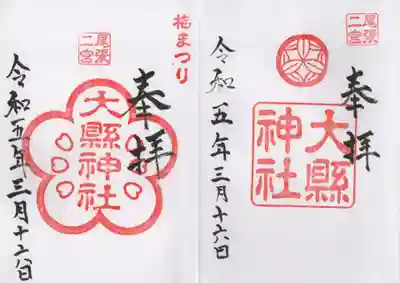 梅まつり
尾張
二宮
奉拝
大縣神社
令和五年三月十六日
尾張
二宮
奉拝
大縣
神社
令和五年三月十六日